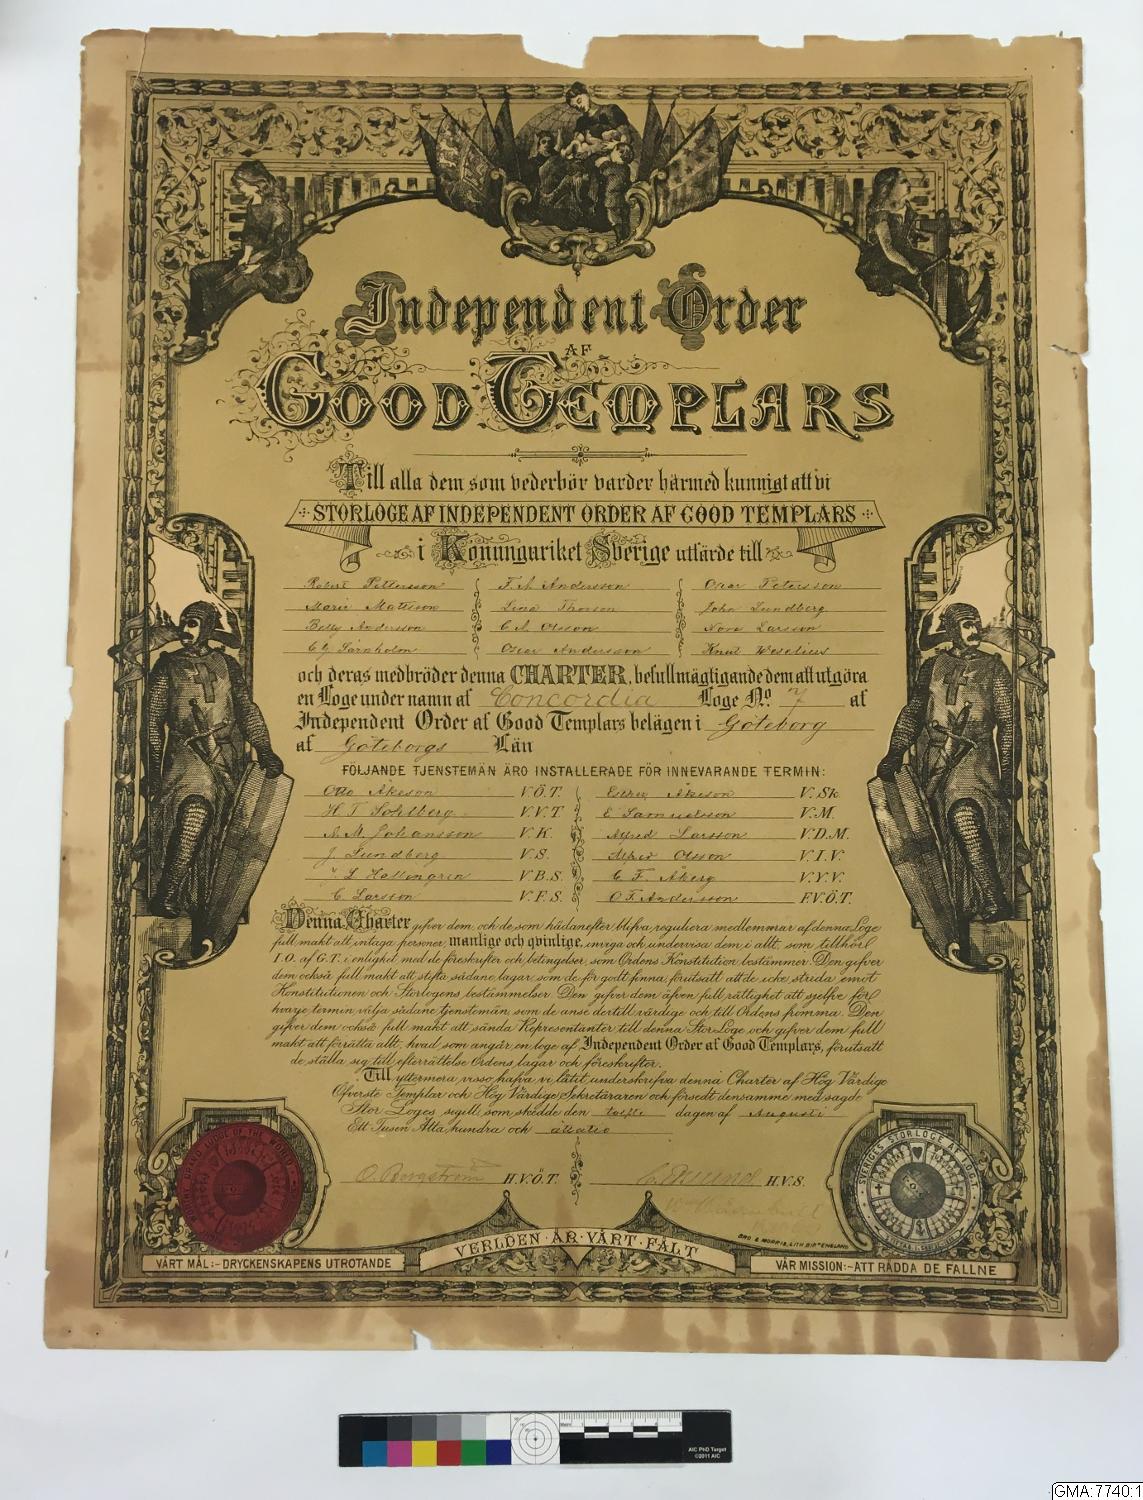 Independent Order
AF
GOOD TEMPLARS
Till alla dem som vederbör varder härmed kunnigt att vi
STORLOGE AF INDEPENDENT ORDER AF GOOD TEMPLARS
i Konungariket Sverige utfärde till
Robert Pettersson F. A. Andersson Oscar Petersson
Marie Matsson Lina Thorson John Lundberg
Betty Andersson C A. Olsson Nora Larsson
C G Särnholm Oscar Andersson Knut Weselius
och deras medbröder denna CHARTER, befullmägtigande dem att utgöra
en Loge under namn af Concordia Loge No. 7 af
Independent Order af Good Templars belägen i Göteborg
af Göteborgs Län
FÖLJANDE TJENSTEMÄN ÄRO INSTALLERADE FÖR INNEVARANDE TERMIN:
Otto Åkeson V.Ö.T. Esther Åkeson V.Sk
H. T. Sohlberg V.V.T E Samuelsson V.M.
A. M. Johansson V.K. Alfred Larsson V.D.M.
J. Lundberg V.S. Alfred Olsson V.I.V.
J L Hallengren V.B.S. C F. Åberg V.Y.V.
C Larsson V.F.S. O F. Andersson F.V.Ö.T.
Denna Charter gifver dem, och de, som hädanefter blifva, reguliera medlemmar af denna Loge
full makt att intaga personer, manlige och qvinlige, inviga och undervisa dem i allt, som tillhör
I.O. af G.T. i enlighet med de föreskrifter och betingelser, som Ordens Konstitution bestämmer. Den gifver
dem också full makt att stifta sådane lagar, som de för godt finna, förutsatt att de icke strida emot
Konstitutionen och Storlogens bestämmelser. Den gifver dem äfven full rättighet att sjelfve för
hvarje termin välja sådane tjenstemän, som de anse dertill värdige och till Ordens fromma. Den
gifver dem också full makt att sända Representanter till denna Stor Loge och gifver dem full
makt att förrätta allt, hvad som angår en loge af Independent Order af Good Templars, förutsatt
de ställa sig till efterrättelse Ordens lagar och föreskrifter.
Till yttermera visso hafva vi låtit underskrifva denna Charter af Hög Värdige
Öfverste Templar och Hög Värdige Sekreteraren och försedt densamme med sagde
Stor Loges sigill, som skedde den tolfte dagen af Augusti
Ett Tusen Åtta hundra och åttatio
O. Bergström H.V.Ö.T. H.V.S.
RIGHT GRAND LODGE OF THE WORLD
SVERIGES STORLOGE AF I.O.G.T.
GEO E MORRIS, LITH, BIRM ENGLAND
VERLDEN ÄR VÅRT FÄLT
VÅRT MÅL:- DRYCKENSKAPENS UTROTANDE
VÅR MISSION:- ATT RÄDDA DE FALLNE
AIC PhD Target
©2011 AIC
GMA:7740:1